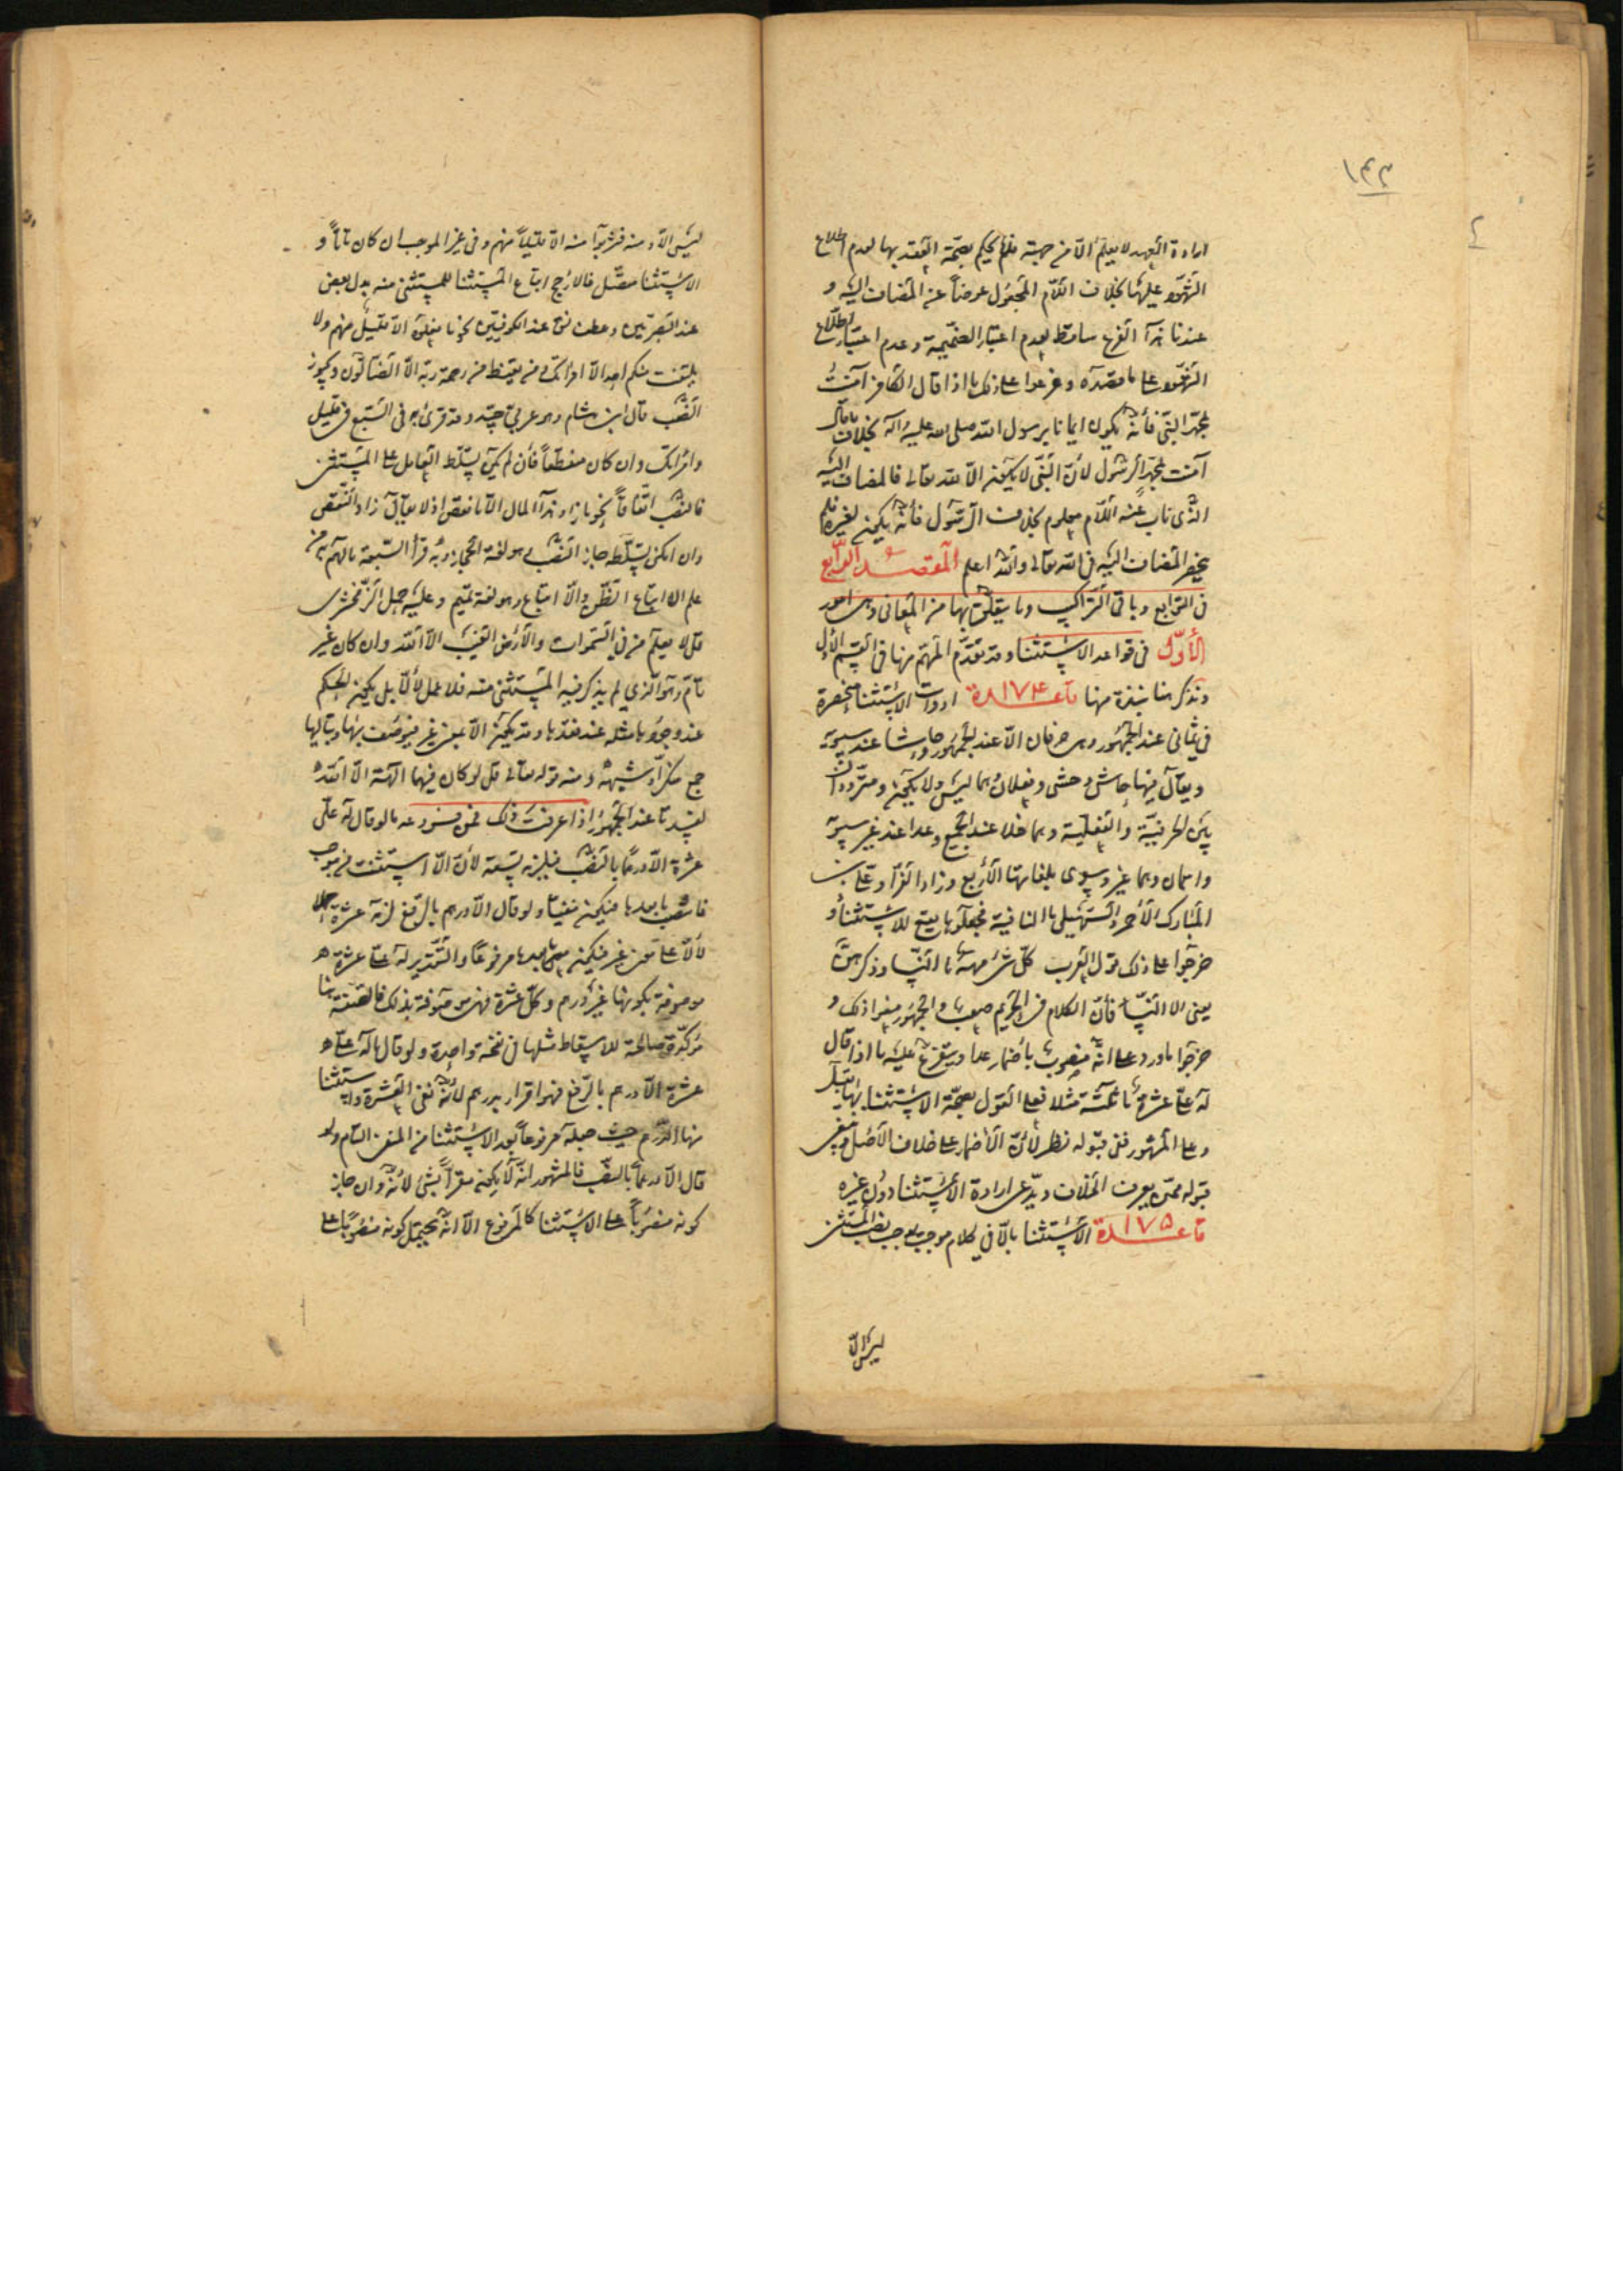 ١٤٣
ارادة العهد لا يعلم الّا من جهته فلم يحكم بصحّة العقد بها لعدم اطلاع
الشهود عليها بخلاف اللام المجعول عوضاً عن المضاف اليه و
عندنا هذا الفرع ساقط لعدم اعتبار الضميمة وعدم اعتبار اطلاع
الشهود على ما قصداه وفرعوا على ذلك ما اذا قال الكافر آمنت
بمحمد النبي فأنه يكون ايمانا برسول الله صلى الله عليه وآله بخلاف ما قال
آمنت بمحمد الرسول لأنّ النبيّ لا يكون الا لله تعالى فالمضاف اليه
الذي ناب عنه اللام معلوم بخلاف الرسول فأنه يكون لغيره فلم
ينحصر المضاف اليه في الله تعالى والله اعلم المقصد الرابع
في التوابع وباقي التراكيب وما يتعلق بها من المعاني وهي امور
الأوّل في قواعد الاستثنا وقد تقدم المهم منها في القسم الأول
ونذكر هنا نبذة منها قاعدة ١٧٤ ادوات الاستثنا منحصرة
في ثماني عند الجمهور وهي حرفان الّا عند الجمهور وحاشا عند سيبويه
ويقال فيها حاش وحشى وفعلان هما ليس ولا يكون ومترددان
بين الحرفية والفعلية وهما خلا عند الجميع وعدا عند غير سيبويه
واسمان وهما غير وسوى بلغاتها الأربع وزاد الفرا وعلي بن
المبارك الأحمر والسهيلي ما النافية فجعلوها يقع للاستثنأ و
خرجوا على ذلك قول العرب كل شئ مهه ما النسا وذكرهن
يعني الا النسا فأنّ الكلام في الحريم صعب والجمهور منعوا ذلك و
خرجوا ما ورد على انه منصوب بأضمار عدا ويتفرع عليه ما اذا قال
له عليّ عشرة ما خمسة مثلا فعلى القول بصحة الاستثنا بها يقبل
وعلى المشهور ففي قبوله نظر لأنّ الأضمار على خلاف الأصل وينبغي
قبوله ممن يعرف الخلاف ويدّعي ارادة الأستثنا دون غيره
قاعدة ١٧٥ الأستثنا بالّا في كلام موجب يوجب نصب المستثنى
ليس الّا
ليس الّا ومنه فشربوا منه الا قليلاً منهم وفي غير الموجب ان كان تاماً و
الاستثنا متصل فالارجح اتباع المستثنا للمستثنى منه بدل بعض
عند البصريين وعطف نسق عند الكوفيين نحو ما فعلوه الا قليل منهم ولا
يلتفت منكم احد الا امرأتك ومن يقنط من رحمة ربه الا الضالون ويجوز
النصب قال ابن هشام وهو عربي جيد وقد قرئ به في السبع في قليل
وامرأتك وان كان منقطعاً فأن لم يمكن تسلط العامل على المستثنى
فالنصب اتفاقاً نحو ما زاد هذا المال الا ما نقص اذ لا يقال زاد النقص
وان امكن تسلطه جاز النصب وهو لغة الحجاز وبه قرأ السبعة ما لهم به من
علم الا اتباع الظن والا اتباع وهو لغة تميم وعليه حمل الزمخشري
قل لا يعلم من في السموات والأرض الغيب الا الله وان كان غير
تام وهو الذي لم يذكر فيه المستثنى منه فلا عمل لألّا بل يكون الحكم
عند وجودها مثله عند فقدها وقد يكون الّا بمنزلة غير فيوصف بها وبتاليها
جمع منكر او شبهه ومنه قوله تعالى قل لو كان فيهما الهة الا الله
لفسدتا عند الجمهور اذا عرفت ذلك فمن فروعه ما لو قال له عليّ
عشرة الا درهماً بالنصب فيلزمه تسعة لأنّ الّا استثنت من موجب
فانتصب ما بعدها فيكون منفيا ولو قال الا درهم بالرفع لزمه عشرة كملا
لأنّ الّا بمعنى غير فيكون ما بعدها مرفوعاً والتقدير له عليّ عشرة
موصوفة بكونها غير درهم وكل عشرة فهي موصوفة بذلك فالصفة هنا
مؤكدة صالحة للاسقاط مثلها في نفخة واحدة ولو قال ما له عليّ
عشرة الا درهم بالرفع فهو اقرار بدرهم لأنه نفى العشرة واستثنا
منها الدرهم حيث جعله مرفوعاً بعد الاستثنا من المنفي التام ولو
قال الا درهماً بالنصب فالمشهور انه لا يكون مقراً بشئ لأنه وان جاز
كونه منصوباً على الاستثنا كالمرفوع الا انه يحتمل كونه منصوباً على